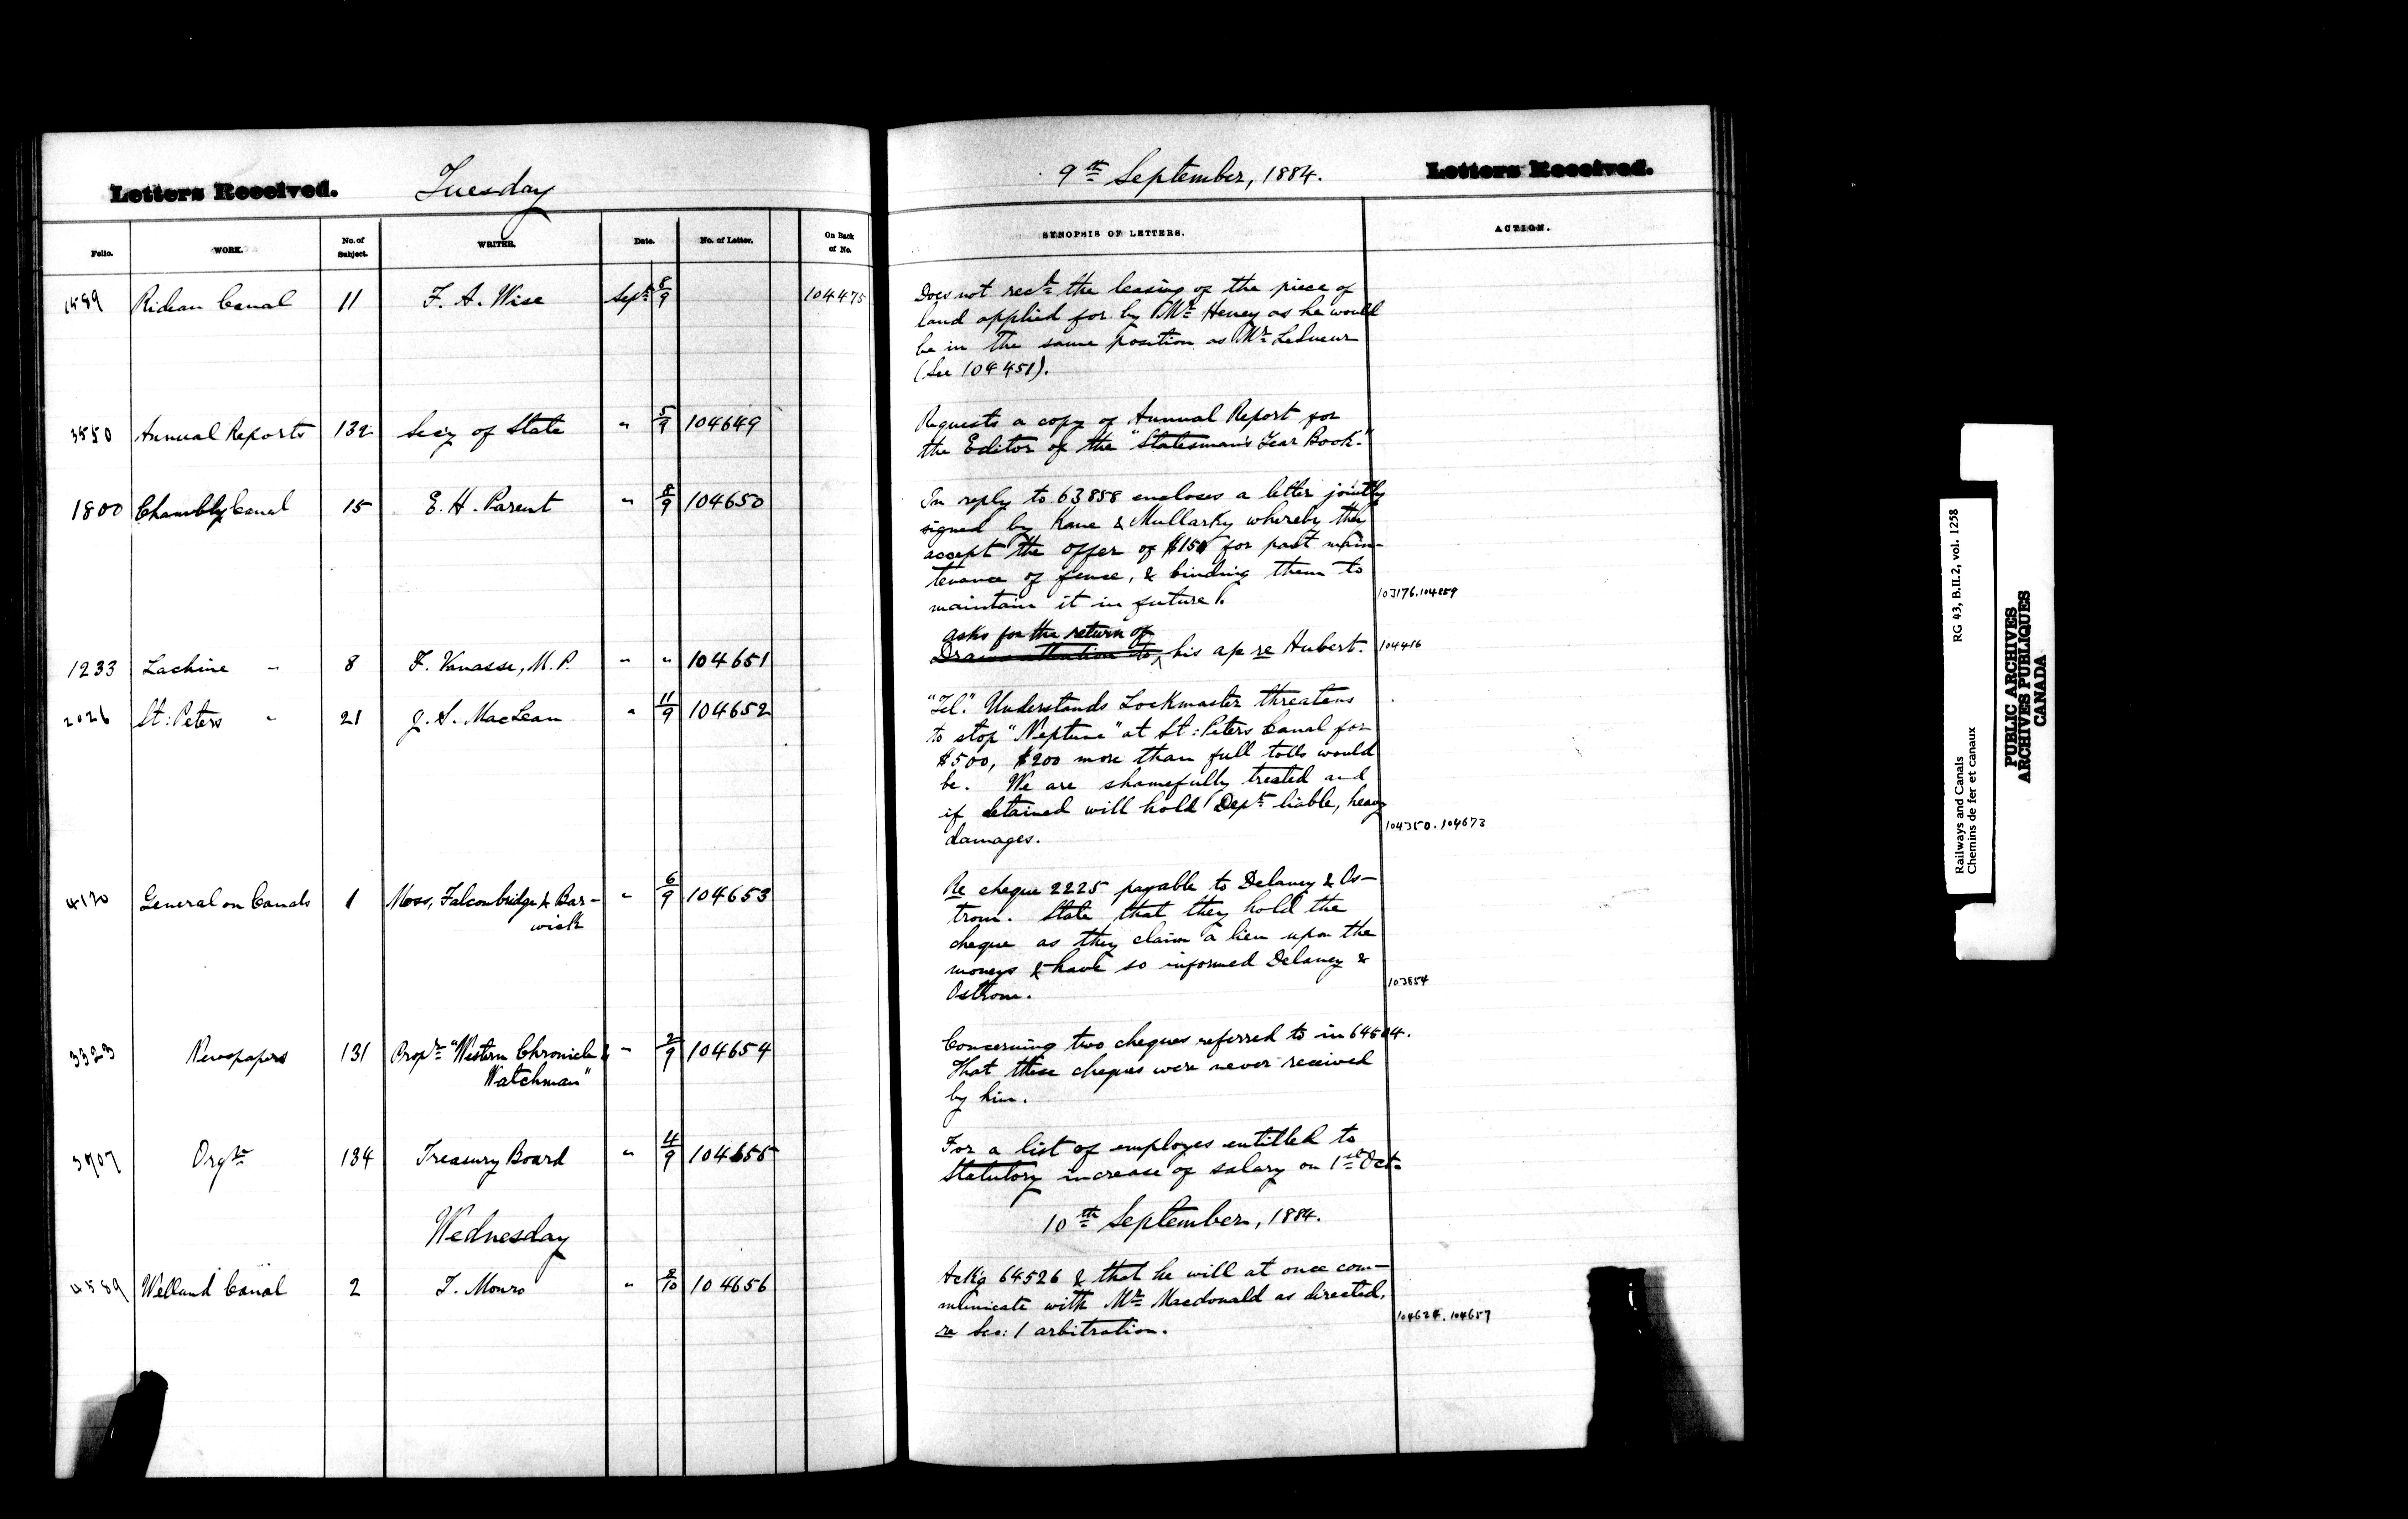 Letters Received. Tuesday
Folio. WORK. No. of Subject. WRITER. Date. No. of Letter. On Back of No.
1589 Rideau Canal 11 F. A. Wise Sept 8/9 104475
3550 Annual Reports 132 Secy of State " 5/9 104649
1800 Chambly Canal 15 E. H. Parent " 8/9 104650
1233 Lachine " 8 F. Vanasse, M.P. " " 104651
2026 St: Peters " 21 J. S. MacLean " 11/9 104652
4170 General on Canals 1 Moss, Falconbridge & Bar-
wick " 6/9 104653
3323 Newspapers 131 Propr "Western Chronicle &
Watchman" " 2/9 104654
3707 Orgn 134 Treasury Board " 4/9 104655
Wednesday
4589 Welland Canal 2 T. Monro " 104656
9th September, 1884. Letters Received.
SYNOPSIS OF LETTERS. ACTION.
Does not recd the leasing of the piece of
land applied for by Mr Heney as he would
be in the same position as Mr LeSueur
(See 104451).
Requests a copy of Annual Report for
the Editor of the "Statesman's Year Book."
In reply to 63858 encloses a letter jointly
signed by Kane & Mullarky whereby they
accept the offer of $150 for past main-
tenance of fence, & binding them to
maintain it in future.
103176.104859
asks for the return of
Draws attention to his ap re Hubert.
104416
"Tel." Understands Lockmaster threatens
to stop "Neptune" at St: Peters Canal for
$500, $200 more than full tolls would
be. We are shamefully treated and
if detained will hold Dept liable, heavy
damages.
104350.104673
Re cheque 2225 payable to Delaney & Os-
trom. State that they hold the
cheque as they claim a lien upon the
moneys & have so informed Delaney &
Ostrom.
103854
Concerning two cheques referred to in 64504.
That these cheques were never received
by him.
For a list of employes entitled to
Statutory increase of salary on 1st Oct-
10th September, 1884.
Ackg 64526 & that he will at once com-
municate with Mr Macdonald as directed,
re Sec: 1 arbitration.
104624.104657
Railways and Canals RG 43, B.II.2, vol. 1258
Chemins de fer et canaux
PUBLIC ARCHIVES
ARCHIVES PUBLIQUES
CANADA